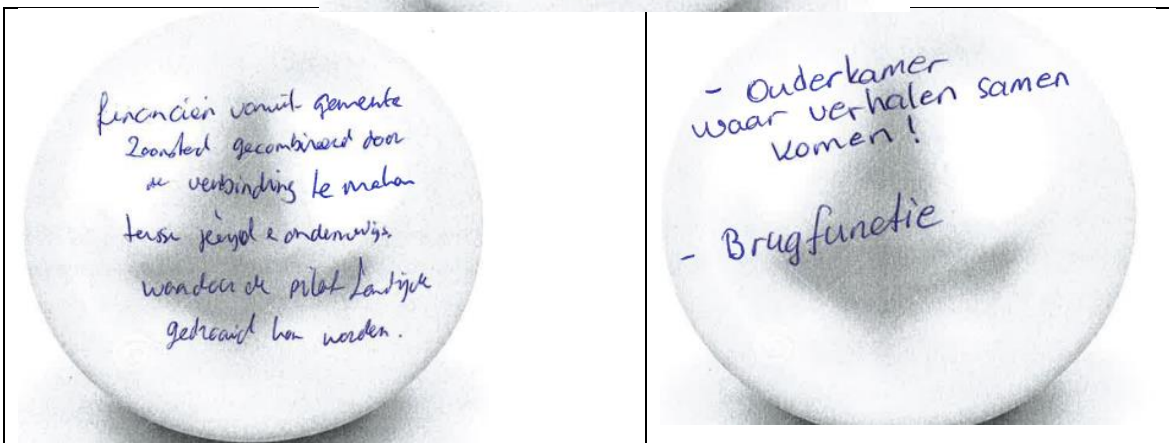 financiën vanuit gemeente
Zaanstad gecombineerd door
de verbinding te maken
tussen jeugd & onderwijs.
waardoor de pilot
gedraaid kan worden.
- Ouderkamer
waar verhalen samen
komen!
- Brugfunctie